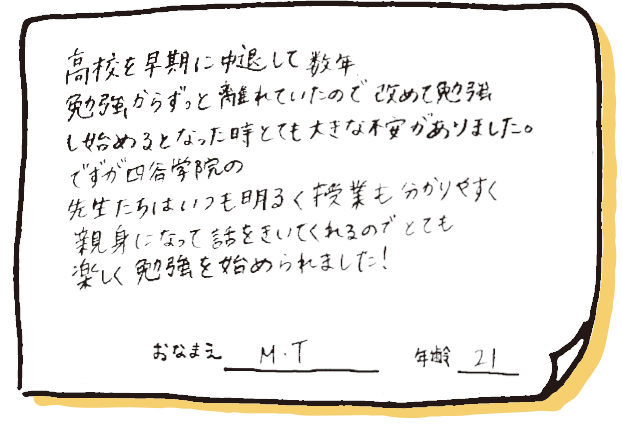 高校を早期に中退して数年
勉強からずっと離れていたので改めて勉強
し始めるとなった時とても大きな不安がありました。
ですが四谷学院の
先生たちはいつも明るく授業も分かりやすく
親身になって話をきいてくれるのでとても
楽しく勉強を始められました!
おなまえ M.T 年齢 21